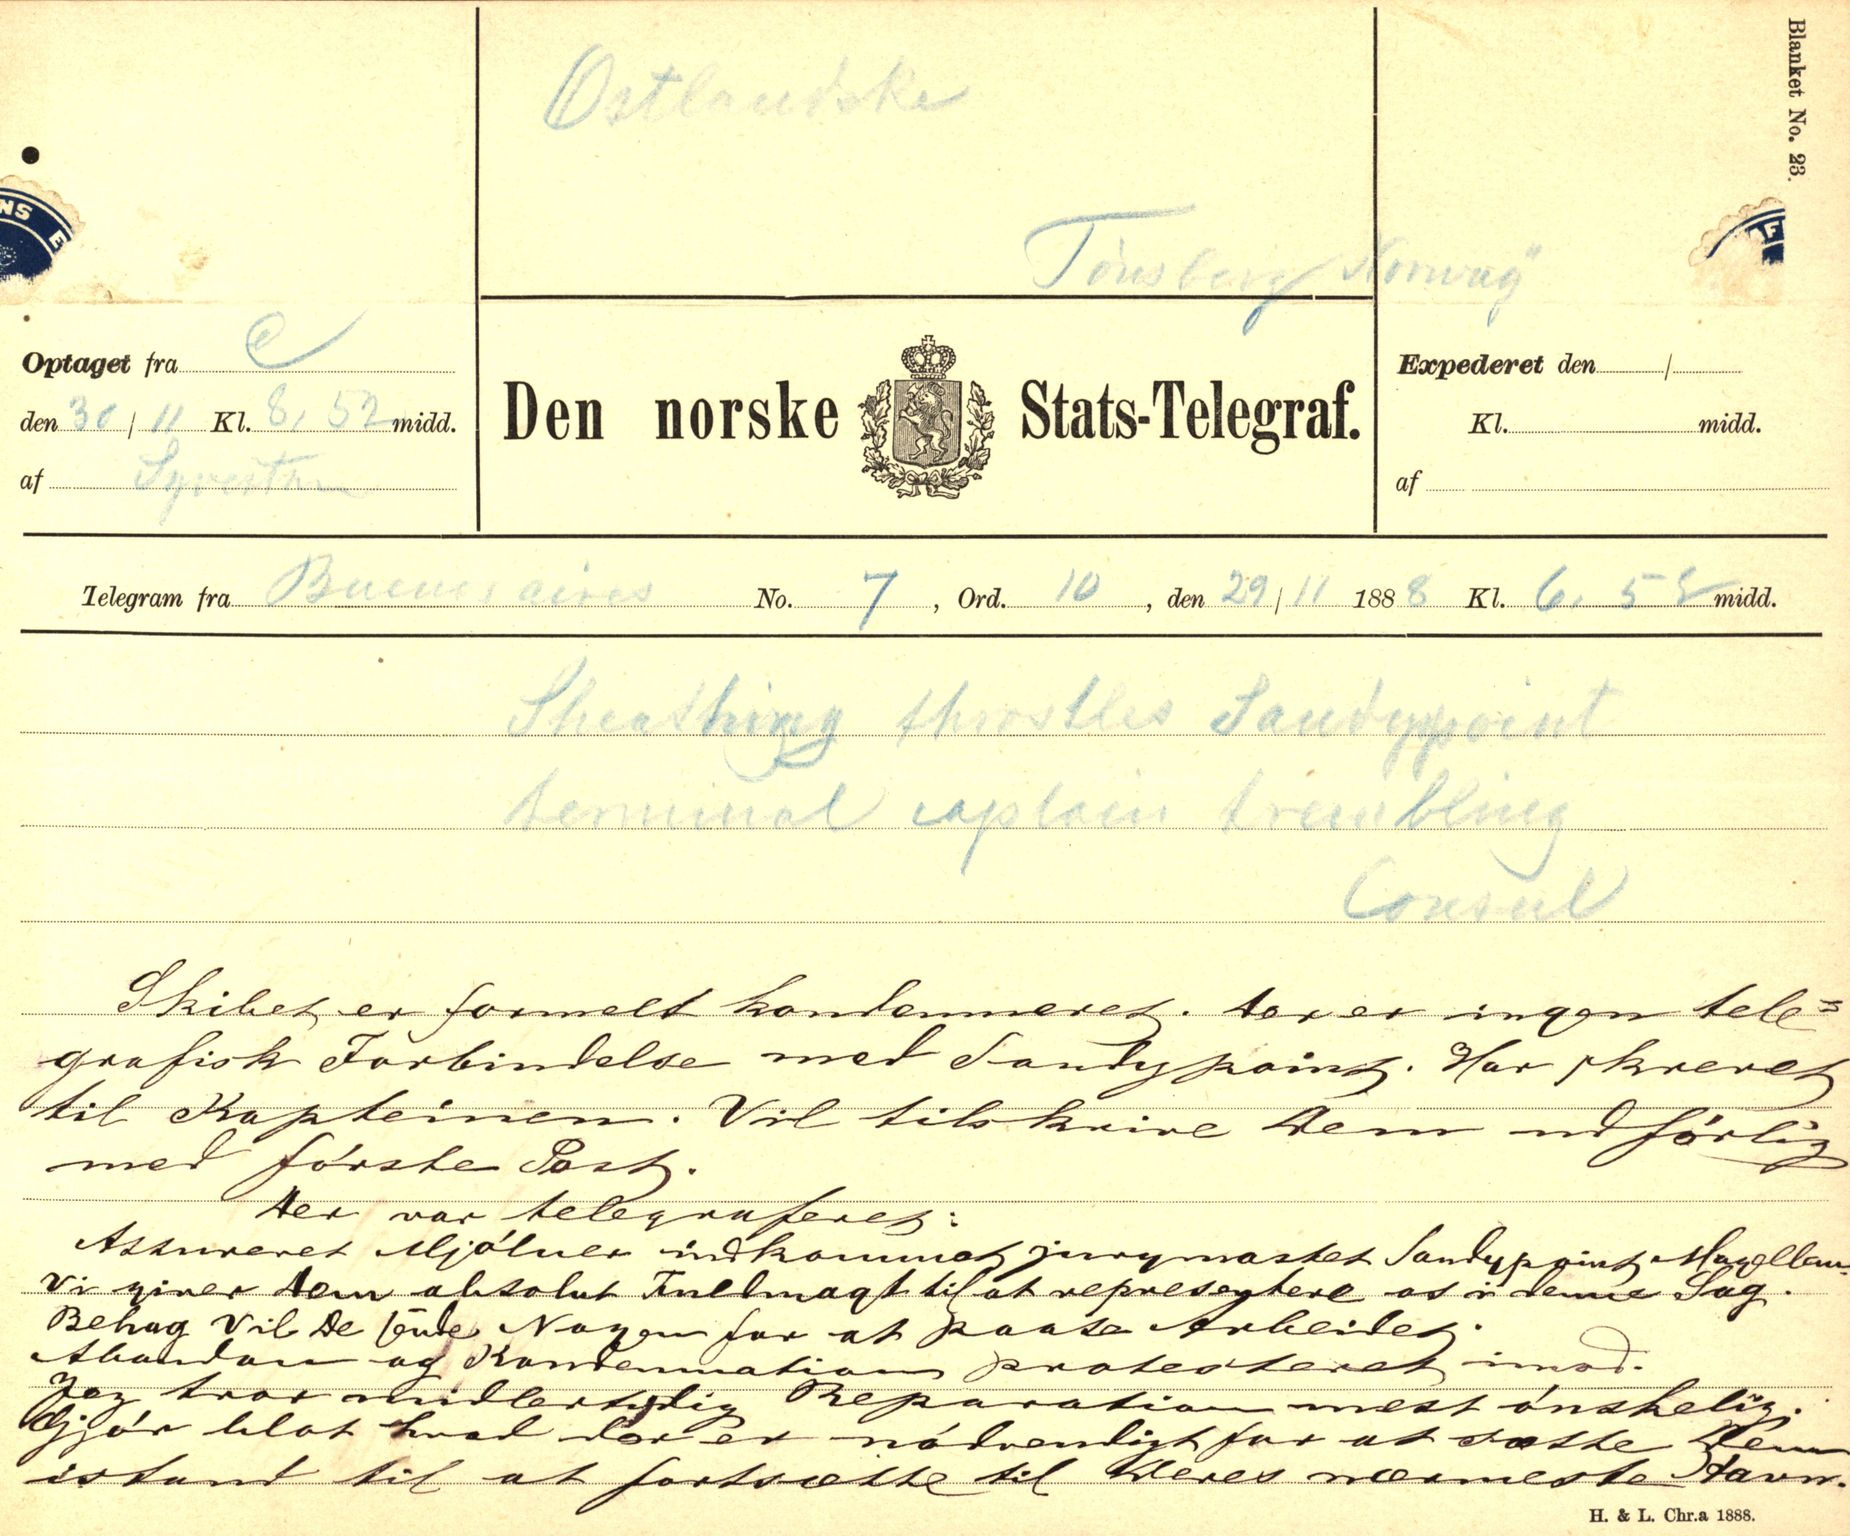 Blanket No. 23.
Ostlandske
Tönsberg Norway
NS E
AF
Optaget fra C
den 30 / 11 Kl. 8,52 midd.
af
Den norske Stats-Telegraf.
Expederet den /
Kl. midd.
af
Telegram fra Buenosaires No. 7, Ord. 10, den 29 / 11 1888 Kl. 6,52 midd.
Sheathing throstles Sandypoint
terminal captain trembling
Consul
Skibet er formelt kondemneret. Der er ingen tele=
grafisk Forbindelse med Sandypoint. Har skrevet
til Kapteinen. Vil tilskrive Dem udförlig
med förste Post.
Der var telegraferet:
Assureret Mjölner indkommet jurymastet Sandypoint Magellan.
Vi giver Dem absolut Fuldmagt til at representere os i denne Sag.
Behag Vil De sende Nogen for at paase Arbeidet.
Abandon og Kondemnation protesteret imod.
Jeg tror midlertidig Reparation mest önskelig.
Gjör blot hvad der er nödvendigt for at sætte Dem
istand til at fortsætte til Deres nærmeste Havn.
H. & L. Chr.a 1888.